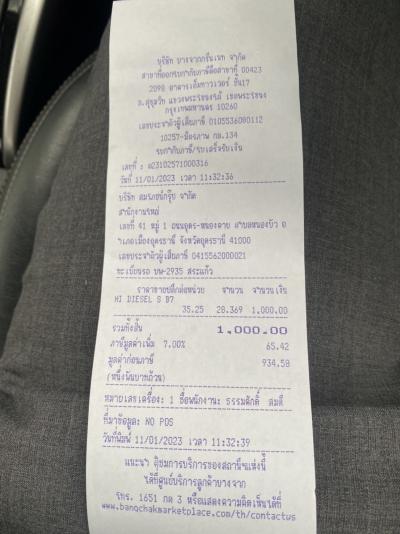 บริษัท บางจากกรีนเนท จำกัด
สาขาที่ออกใบกำกับภาษีคือสาขาที่ 00423
2098 อาคารเอ็มทาวเวอร์ ชั้น17
ถ.สุขุมวิท แขวงพระโขนงใต้ เขตพระโขนง
กรุงเทพมหานคร 10260
เลขประจำตัวผู้เสียภาษี 0105536080112
10257-มิตรภาพ กม.134
ใบกำกับภาษี/ใบเสร็จรับเงิน
เลขที่ : 023102571000316
วันที่ 11/01/2023 เวลา 11:32:36
บริษัท สมรภณ์กรุ๊ป จำกัด
สำนักงานใหญ่
เลขที่ 41 หมู่ 1 ถนนอุดร-หนองคาย ตำบลหนองบัว อ
ำเภอเมืองอุดรธานี จังหวัดอุดรธานี 41000
เลขประจำตัวผู้เสียภาษี 0415562000021
ทะเบียนรถ บพ-2935 สระแก้ว
ราคาขายปลีกต่อหน่วย จำนวน จำนวนเงิน
HI DIESEL S B7
35.25 28.369 1,000.00
รวมทั้งสิ้น 1,000.00
ภาษีมูลค่าเพิ่ม 7.00% 65.42
มูลค่าก่อนภาษี 934.58
(หนึ่งพันบาทถ้วน)
หมายเลขเครื่อง: 1 ชื่อพนักงาน: ธรรมศักดิ์ สมดี
ที่มาข้อมูล: NO POS
วันที่พิมพ์ 11/01/2023 เวลา 11:32:39
แนะนำ ติชมการบริการของสถานีฯแห่งนี้
ได้ที่ศูนย์บริการลูกค้าบางจาก
โทร. 1651 กด 3 หรือแสดงความคิดเห็นได้ที่
www.bangchakmarketplace.com/th/contactus